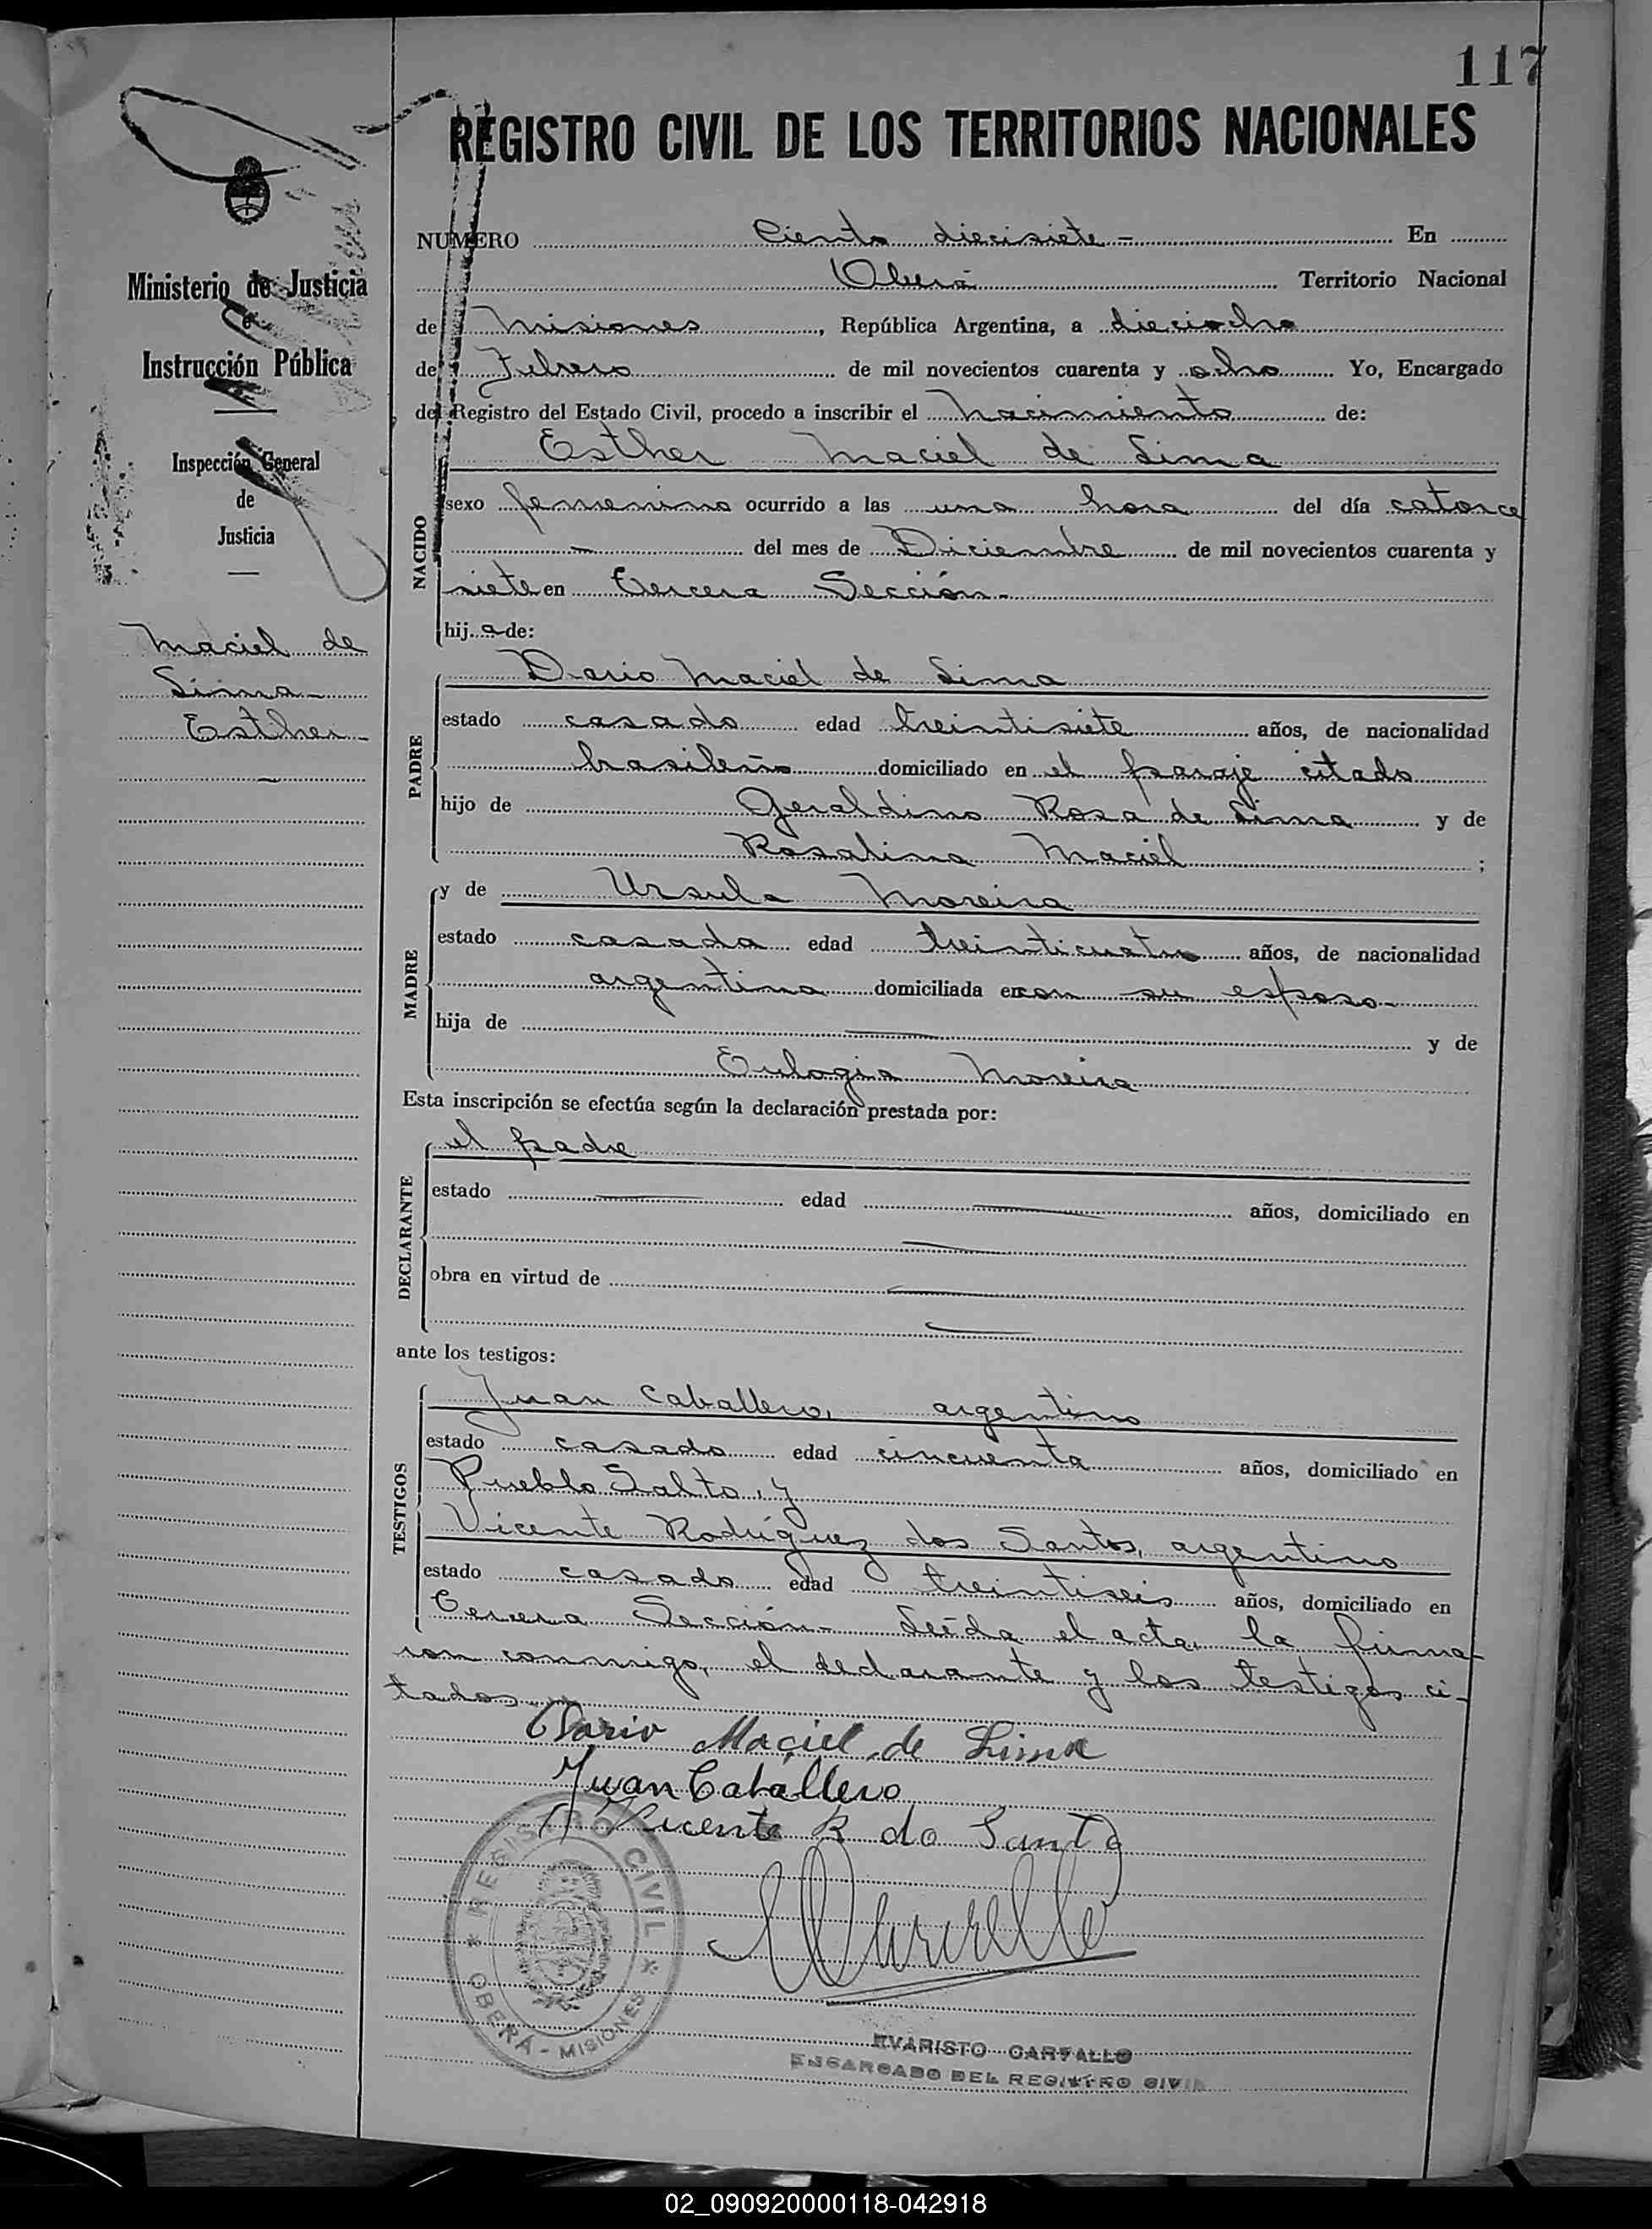 117
REGISTRO CIVIL DE LOS TERRITORIOS NACIONALES
Ministerio de Justicia
e
Instrucción Pública
Inspección General
de
Justicia
Maciel de
Lima
Esther
NUMERO Ciento diecisiete - En
Oberá Territorio Nacional
de Misiones, República Argentina, a dieciocho
de Febrero de mil novecientos cuarenta y ocho Yo, Encargado
del Registro del Estado Civil, procedo a inscribir el nacimiento de:
Esther Maciel de Lima
NACIDO
sexo femenino ocurrido a las una hora del día catorce
- del mes de Diciembre de mil novecientos cuarenta y
siete en Tercera Sección.
hija de:
PADRE
Dario Maciel de Lima
estado casado edad treintisiete años, de nacionalidad
brasileño domiciliado en el paraje citado
hijo de Geraldino Rosa de Lima y de
Rosalina Maciel ;
MADRE
y de Ursula Moreira
estado casada edad treinticuatro años, de nacionalidad
argentina domiciliada en con su esposo
hija de y de
Eulogia Moreira
Esta inscripción se efectúa según la declaración prestada por:
DECLARANTE
el padre
estado edad años, domiciliado en
obra en virtud de
ante los testigos:
TESTIGOS
Juan Caballero, argentino
estado casado edad cincuenta años, domiciliado en
Pueblo Salto, y
Vicente Rodríguez dos Santos, argentino
estado casado edad treintiseis años, domiciliado en
Tercera Sección.- Leída el acta, la firma-
ron conmigo, el declarante y los testigos ci-
tados
Dario Maciel de Lima
Juan Caballero
Vicente R do Santo
REGISTRO CIVIL
OBERÁ - MISIONES
EVARISTO CARVALLO
ENCARGADO DEL REGISTRO CIVIL
02_090920000118-042918